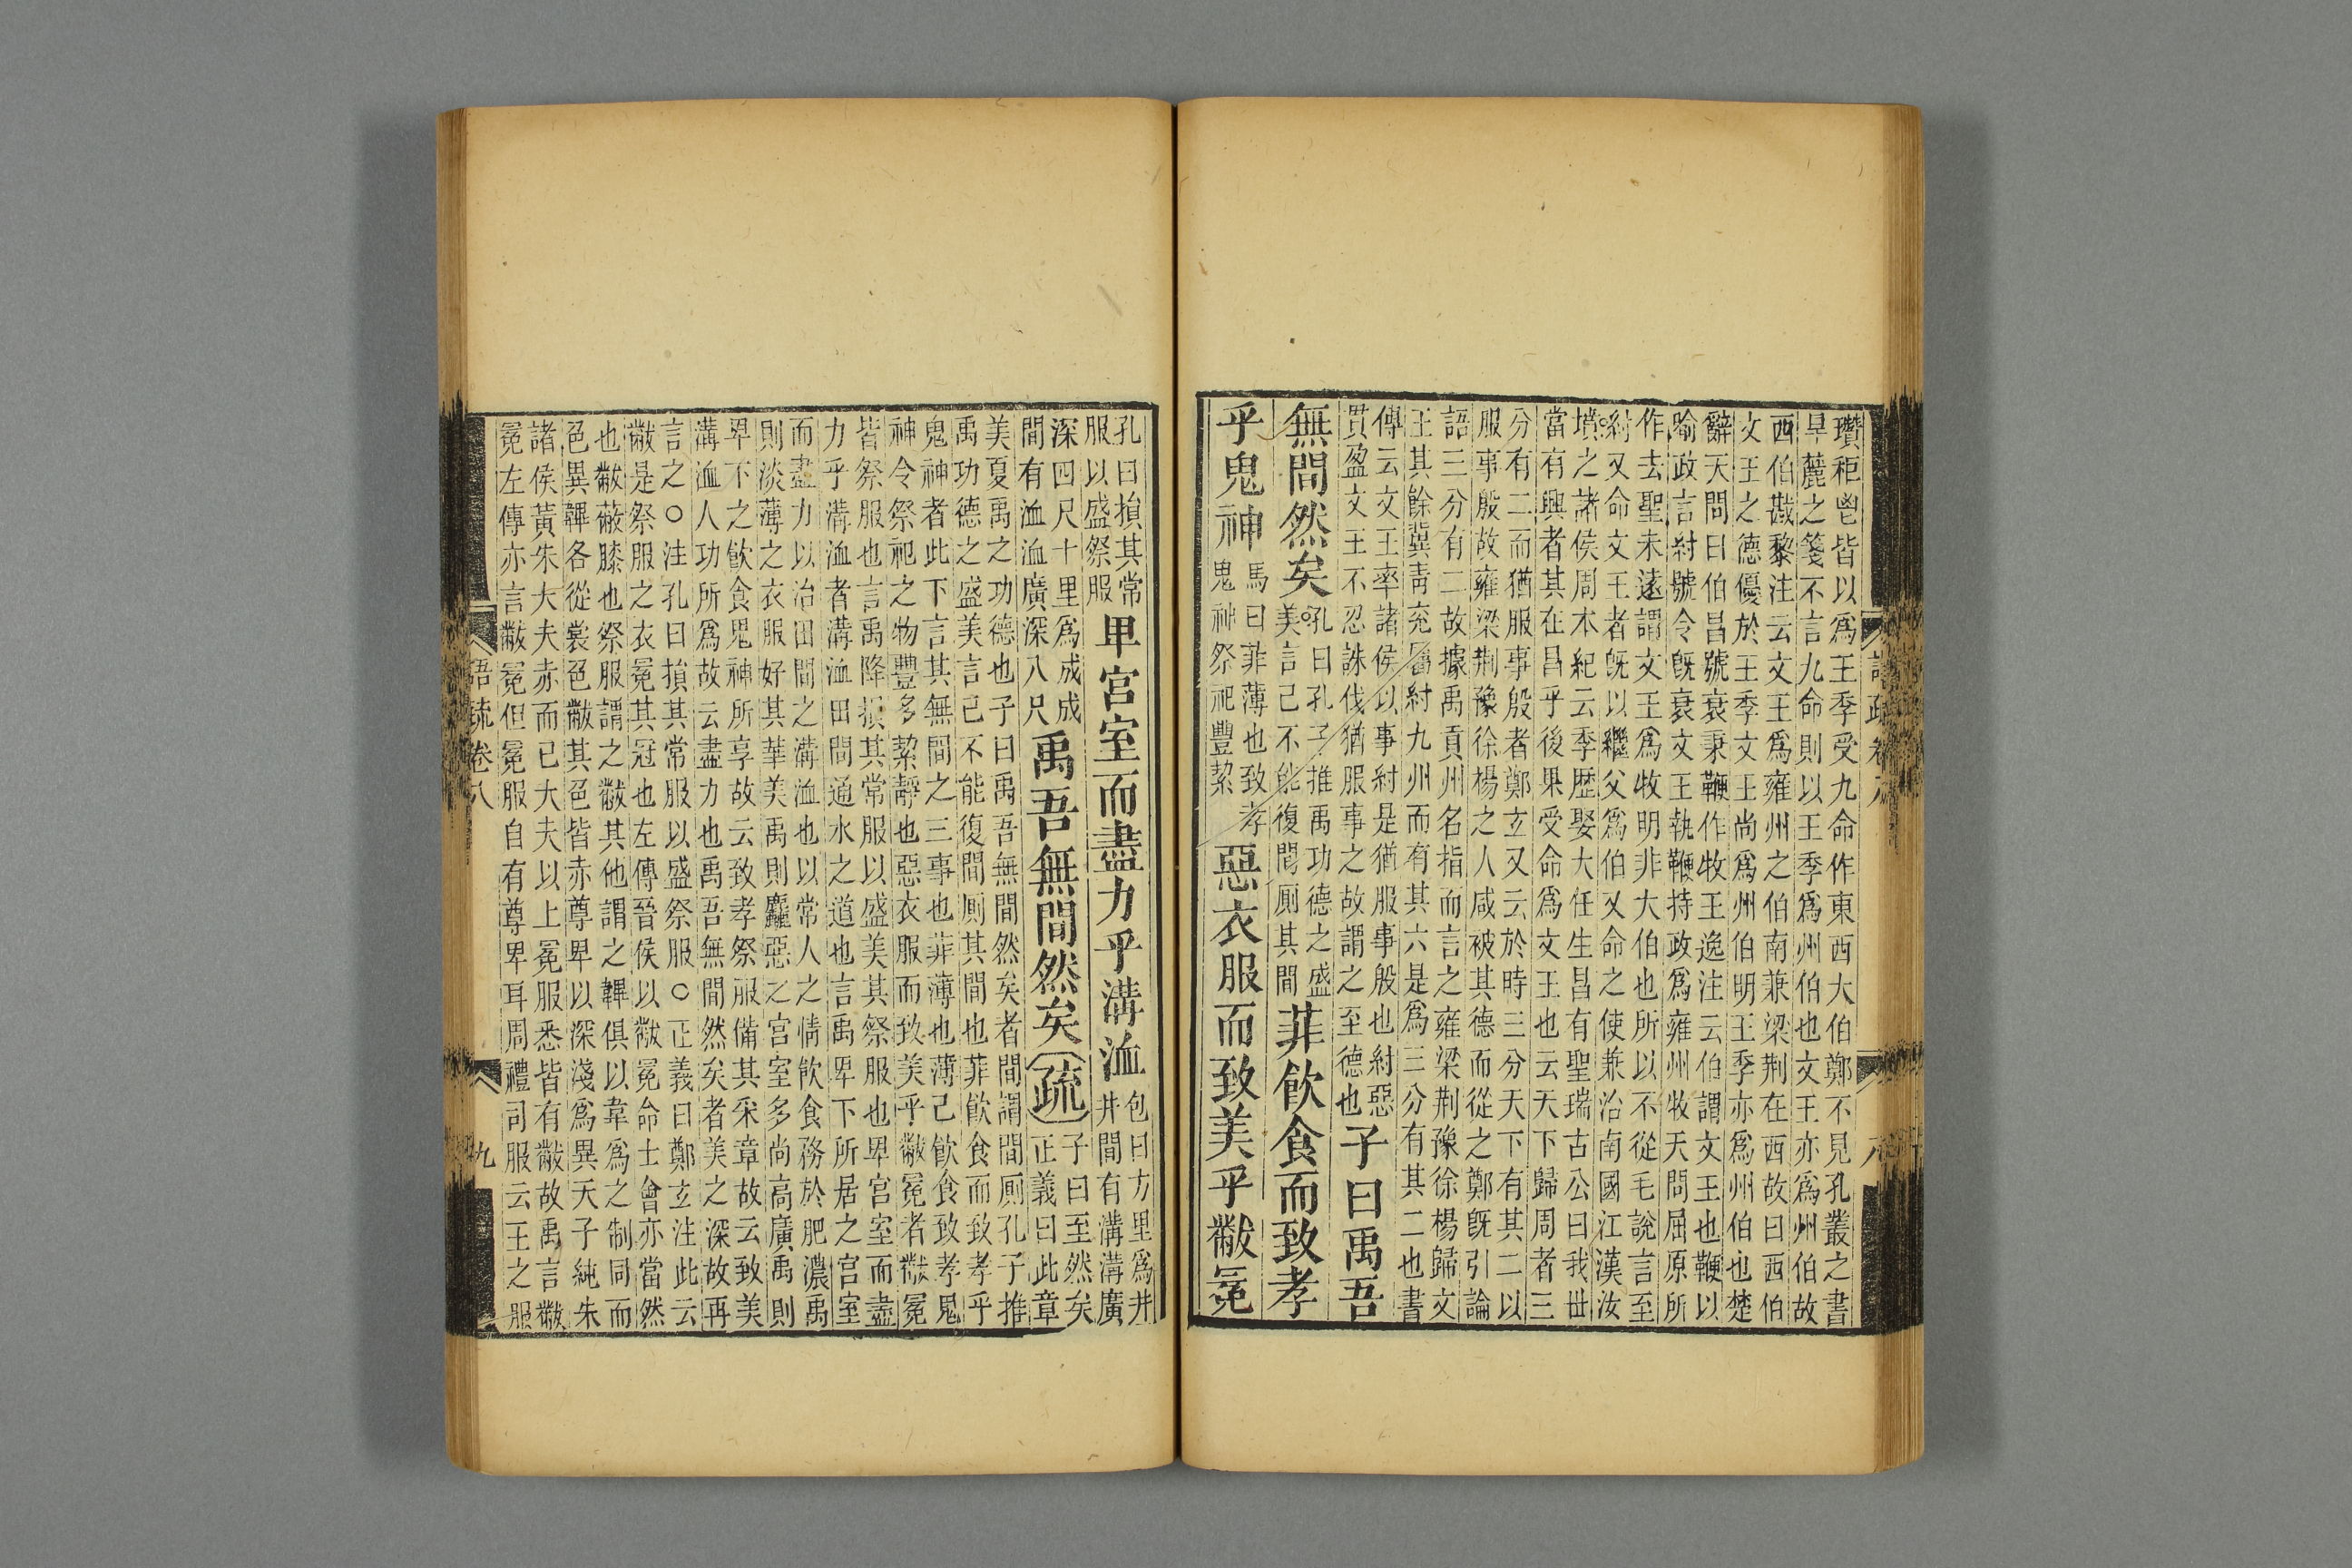 瓚秬鬯皆以爲王季受九命作東西大伯鄭不見孔叢之書
旱麓之箋不言九命則以王季爲州伯也文王亦爲州伯故
西伯戡黎注云文王爲雍州之伯南兼梁荆在西故曰西伯
文王之德優於王季文王尚爲州伯明王季亦爲州伯也楚
辭天問曰伯昌號衰秉鞭作牧王逸注云伯謂文王也鞭以
喻政言紂號令旣衰文王執鞭持政爲雍州牧天問屈原所
作去聖未遠謂文王爲牧明非大伯也所以不從毛說言至
紂又命文王者旣以繼父爲伯又命之使兼治南國江漢汝
墳之諸侯周本紀云季歴娶大任生昌有聖瑞古公曰我世
當有興者其在昌乎後果受命爲文王也云天下歸周者三
分有二而猶服事殷者鄭玄又云於時三分天下有其二以
服事殷故雍梁荆豫徐楊之人咸被其德而從之鄭旣引論
語三分有二故據禹貢州名指而言之雍梁荆豫徐楊歸文
王其餘冀靑兖屬紂九州而有其六是爲三分有其二也書
傳云文王率諸侯以事紂是猶服事殷也紂惡
貫盈文王不忍誅伐猶服事之故謂之至德也
子曰禹吾
無間然矣
孔曰孔子推禹功德之盛
美言己不能復間厠其間
菲飲食而致孝
乎鬼神
馬曰菲薄也致孝
鬼神祭祀豐絜
惡衣服而致美乎黻冕
語疏卷八
八
孔曰損其常
服以盛祭服
卑宮室而盡力乎溝洫
包曰方里爲井
井間有溝溝廣
深四尺十里爲成成
間有洫洫廣深八尺
禹吾無間然矣
疏
子曰至然矣
正義曰此章
美夏禹之功德也子曰禹吾無間然矣者間謂間厠孔子推
禹功德之盛美言己不能復間厠其間也菲飲食而致孝乎
鬼神者此下言其無間之三事也菲薄也薄己飲食致孝鬼
神令祭祀之物豐多絜靜也惡衣服而致美乎黻冕者黻冕
皆祭服也言禹降損其常服以盛美其祭服也卑宮室而盡
力乎溝洫者溝洫田間通水之道也言禹卑下所居之宮室
而盡力以治田間之溝洫也以常人之情飲食務於肥濃禹
則淡薄之衣服好其華美禹則麤惡之宮室多尚高廣禹則
卑不之飲食鬼神所享故云致孝祭服備其采章故云致美
溝洫人功所爲故云盡力也禹吾無間然矣者美之深故再
言之○注孔曰損其常服以盛祭服○正義曰鄭玄注此云
黻是祭服之衣冕其冠也左傳晉侯以黻冕命士會亦當然
也黻蔽膝也祭服謂之黻其他謂之韠俱以韋爲之制同而
色異韠各從裳色黻其色皆赤尊卑以深淺爲異天子純朱
諸侯黃朱大夫赤而已大夫以上冕服悉皆有黻故禹言黻
冕左傳亦言黻冕但冕服自有尊卑耳周禮司服云王之服
語疏卷八
九